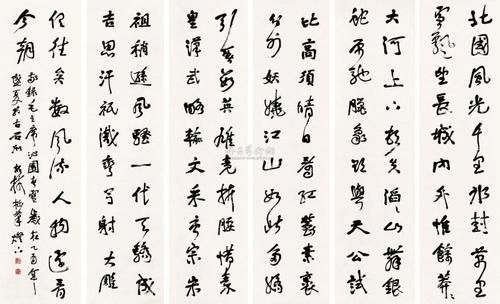 北國風光千里冰封萬里
雪飄望長城內外惟餘莽莽
大河上下頓失滔滔山舞銀
蛇原馳臘象欲與天公試
比高須晴日看紅裝素裹
分外妖嬈江山如此多嬌
引無數英雄競折腰惜秦
皇漢武略輸文采唐宗宋
祖稍遜風騷一代天驕成
吉思汗祇識彎弓射大雕
俱往矣數風流人物還看
今朝
敬錄毛主席沁園春雪歲在乙酉